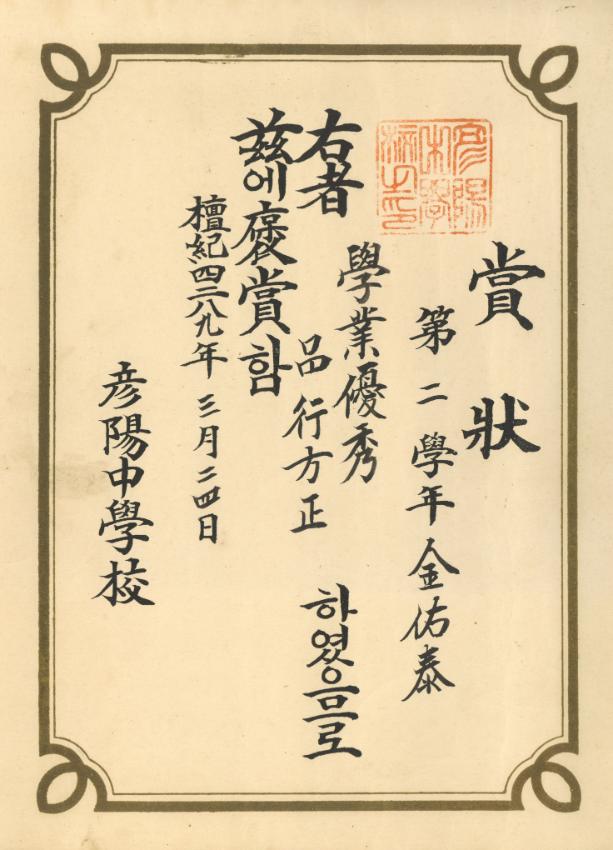 賞狀
第二學年 金佑泰
右者
學業優秀
品行方正
하였음므로
茲에褒賞함
檀紀四二八九年 三月二四日
彦陽中學校